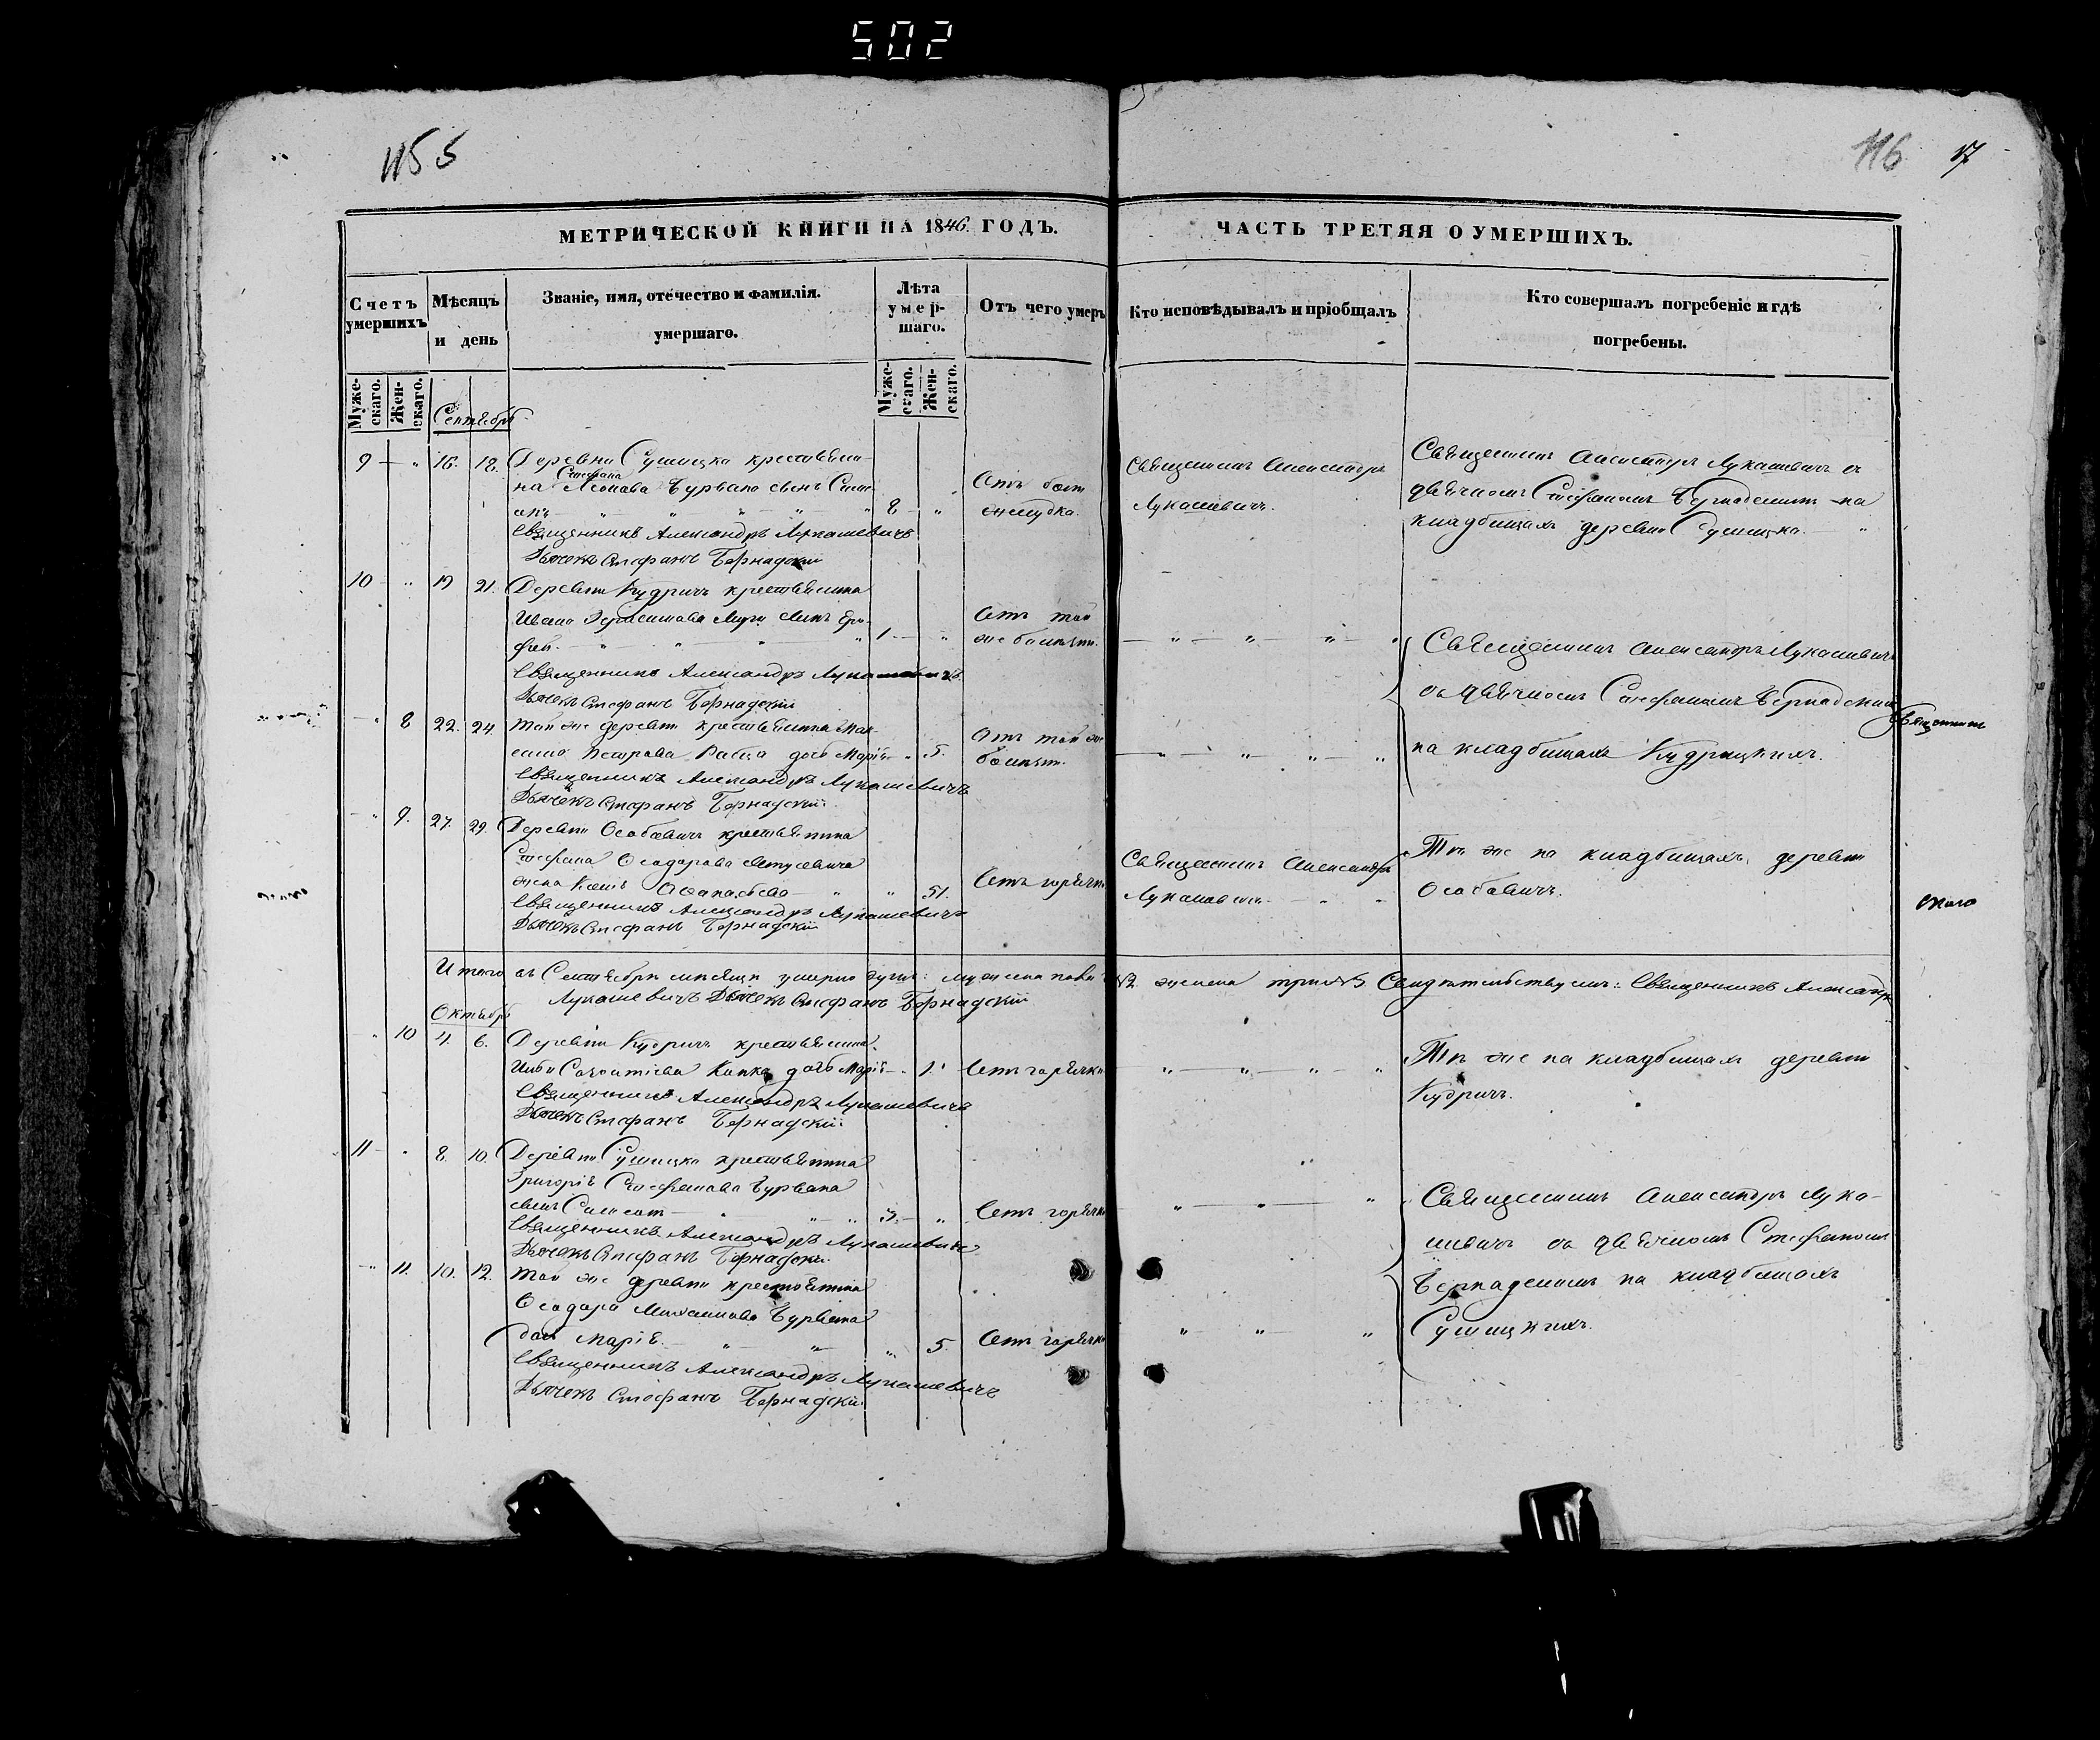 502
1155
116 17
МЕТРИЧЕСКОЙ КНИГИ НА 1846. ГОДЪ.
ЧАСТЬ ТРЕТЯЯ О УМЕРШИХЪ.
Счетъ умершихъ
Мѣсяцъ и день
Званіе, имя, отечество и фамилія. умершаго.
Лѣта умершаго.
Отъ чего умеръ
Кто исповѣдывалъ и пріобщалъ
Кто совершалъ погребеніе и гдѣ погребены.
Мужескаго. Женскаго.
Мужескаго. Женскаго.
Сентябрь
9 — " 16. 18. Деревни Сушицка крестьяни-
Стефана
на Леонава Бурвана сынъ
8 — "
Отъ боли
желудка.
Священникъ Александръ
Лукашевичъ.
Священникъ Александръ Лукашевичъ съ
дьячкомъ Стефаномъ Бернадскимъ на
кладбищахъ деревни Сушицка.
Священникъ Александръ Лукашевичъ
Дьячекъ Стефанъ Бернадскій
10 — " 19 21. Деревни Кудричъ крестьянина
Ивана сынъ Еро-
фей. 1 — "
Отъ той
же болѣзни.
Священникъ Александръ Лукашевичъ
Дьячекъ Стефанъ Бернадскій
Священникъ Александръ Лукашевичъ
съ дьячкомъ Стефаномъ Бернадскимъ
на кладбищахъ Кудрицкихъ.
Священникъ
— " 8 22. 24. Той же деревни крестьянина Мак-
сима Петрова дочь Марія " 5.
Отъ той же
болѣзни.
Священникъ Александръ Лукашевичъ
Дьячекъ Стефанъ Бернадскій
— " 9. 27. 29. Деревни Особовичъ крестьянина
Стефана Осодорова
жена Афанасьева " 51.
Отъ горячки
Священникъ Александръ
Лукашевичъ
Тѣ же на кладбищахъ деревни
Особовичъ.
Священникъ Александръ Лукашевичъ
Дьячекъ Стефанъ Бернадскій
Итого въ Сентябрѣ мѣсяцѣ умерло душъ: мужеска пола 2 женска три 3 Свидѣтельствуемъ: Священникъ Александръ
Лукашевичъ Дьячекъ Стефанъ Бернадскій
Октябрь
" 10 4. 6. Деревни Кудричъ крестьянина
дочь Марія — " 1. Отъ горячки
Тѣ же на кладбищахъ деревни
Кудричъ.
Священникъ Александръ Лукашевичъ
Дьячекъ Стефанъ Бернадскій
11 — " 8. 10. Деревни Сушицка крестьянина
Григорія Стефанова Бурвана
сынъ 3. — " Отъ горячки
Священникъ Александръ Лука-
шевичъ съ дьячкомъ Стефаномъ
Бернадскимъ на кладбищахъ
Сушицкихъ.
Священникъ Александръ Лукашевичъ
Дьячекъ Стефанъ Бернадскій
— " 11. 10. 12. Той же деревни крестьянина
Осодора Бурвана
дочь Марія. " 5. Отъ горячки
Священникъ Александръ Лукашевичъ
Дьячекъ Стефанъ Бернадскій.